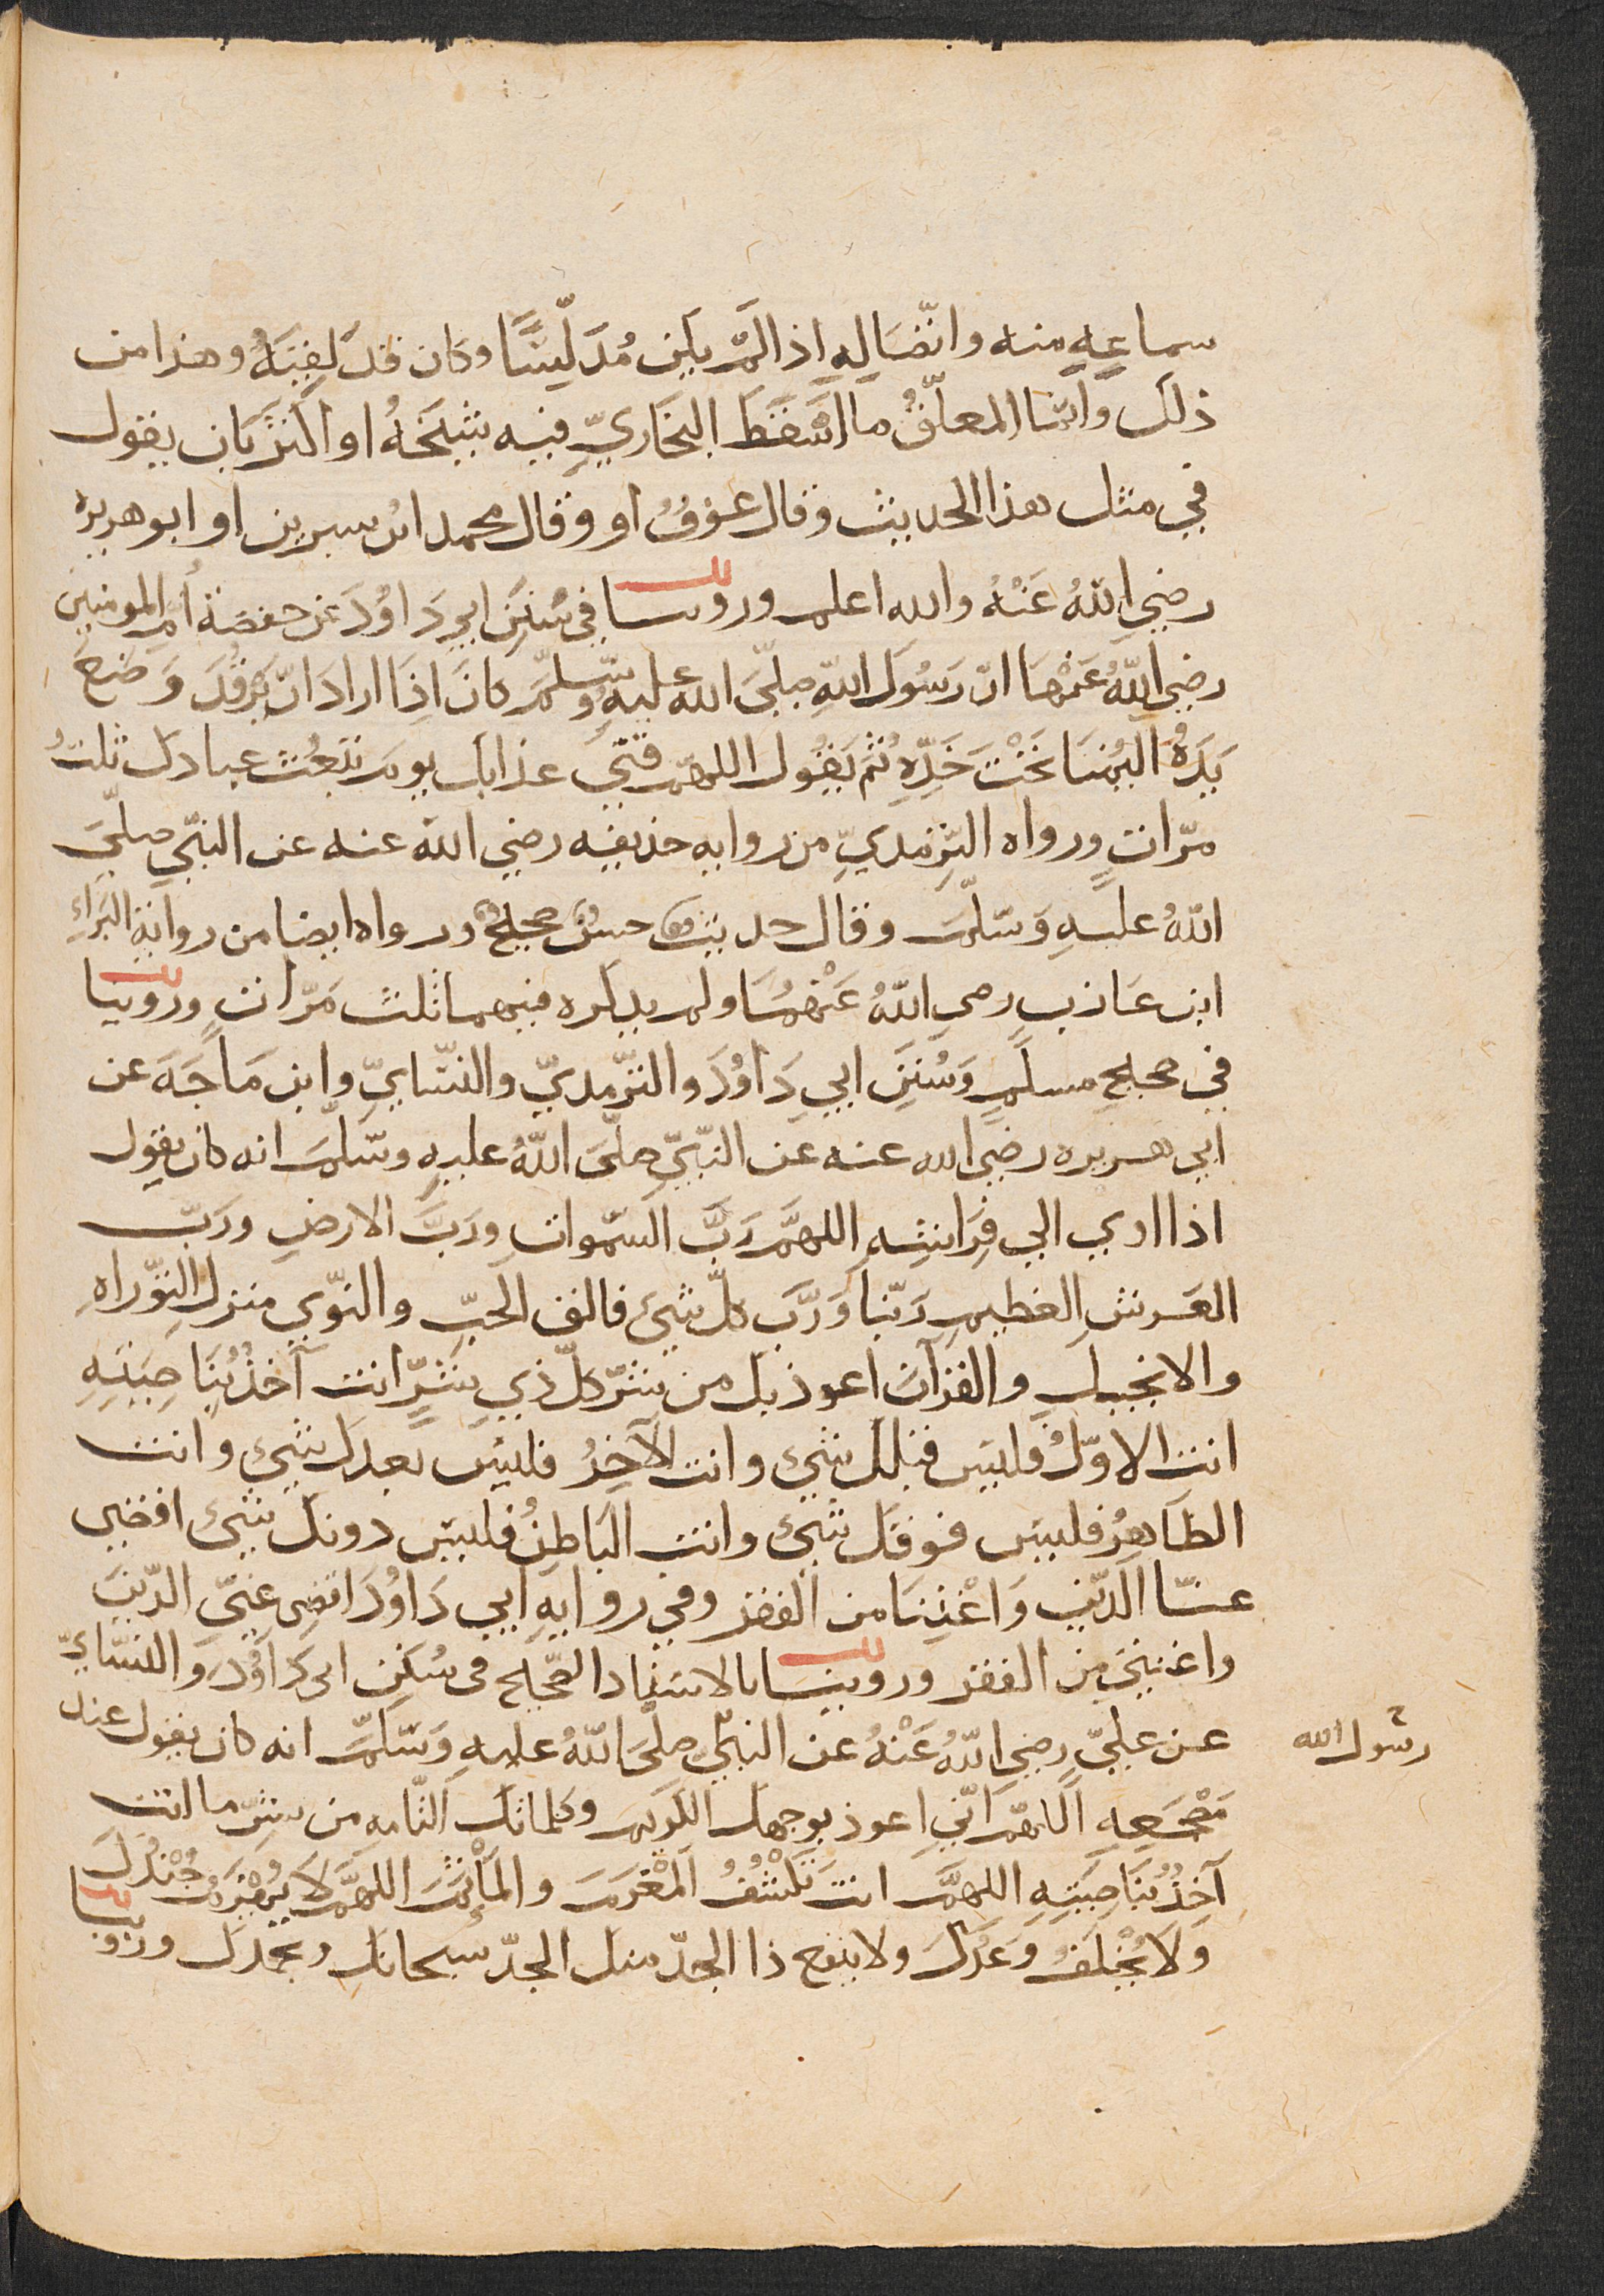 سماعِهِ منه واتّصَالِهِ اذا لَمْ يكن مُدَلِّسًا وكان قد لَقِيَهُ وهذا من
ذلك وانّما المعلّقُ ما اسْقَطَ البخَاريِّ فيه شيخَهُ او اكثر بان يقول
في مثل هذا الحديث وقال عوفُ او وقال محمد ابن سيرين او ابو هريره
رضي اللهُ عَنْهُ والله اعلم وروينا في سُنَنِ ابي دَاوُدَ عن حفصَة أُمِّ المومنين
رضي اللهُ عَنْهَا انّ رَسُولَ اللهِ صلّي الله عليهِ وسلّم كانَ اِذَا ارادَ انْ يَرْقُدَ وَضَعَ
يَدَهُ اليُمْنَا تَحْتَ خَدِّهِ ثُمّ يَقُول اللهمّ قني عذابك يوم تبعُث عبادك ثلثُ
مرّاتٍ ورواه التِّرْمديِّ من روايه حذيفه رضي الله عنه عن النبّي صلّي
اللهُ عليهِ وَسَلّم وقال حديث حسن صحيح ورواه ايضا من روايةِ البَرَاءِ
ابن عَازب رضي اللهُ عَنْهُمَا ولم يدكره فيهما ثلث مَرّاتٍ وروينا
في صحيحِ مسلمٍ وَسُنَنِ ابي دَاوُدَ والترّمديّ والنسّايّ وابن مَاجَهَ عن
ابي هريره رضي الله عنه عن النبّيّ صلّي اللهُ عليهِ وسلّم انه كان يقول
اذا اوي الي فِرَاشِهِ اللهمَّ رَبَّ السّموات وَربَّ الارضِ ورَبّ
العَرشِ العظيمِ رَبّنا وَرَبَّ كلّ شيءٍ فالق الحَبِّ والنوّي منزل التوّراهِ
والانجيلِ والقرآن اعوذ بك من شرّ كلّ ذي شرٍّ انت آخذُ بُنَاصِيَتِهِ
انت الاوّلُ فليس قبلك شيءٌ وانت الآخِرُ فليس بعدك شيءٌ وانت
الظاهِرُ فليس فوقك شيءٌ وانت البَاطِنُ فليس دونك شيءٌ اقضي
عنّا الدّين وَاغْنِنَا من الفقر وفي روايهِ ابي دَاوُدَ اقضِ عنّي الدّينَ
واغنني من الفقر وروينا بالاسناد الصّحيح في سُنَنِ ابي دَاوُدَ والنسّايّ
عن عليّ رضي اللهُ عَنْهُ عن رسول الله صلّي اللهُ عليهِ وَسَلّم انه كان يقول عند
رسول الله
مَضْجَعِهِ اللهمّ انّي اعوذ بوجهك الكريم وكلماتك التّامه من شرّ ما انت
آخِذُ بُنَاصِيَتِهِ اللهمَّ انت تَكْشُفُ المَغْرَمَ والمَأْثمَ اللهمَّ لَا يُهْزَمُ جُنْدُكَ
وَلَا يُخْلَفُ وَعْدُكَ ولا ينفع ذا الجدّ منك الجدّ سبحانك وبحمدك وروينا